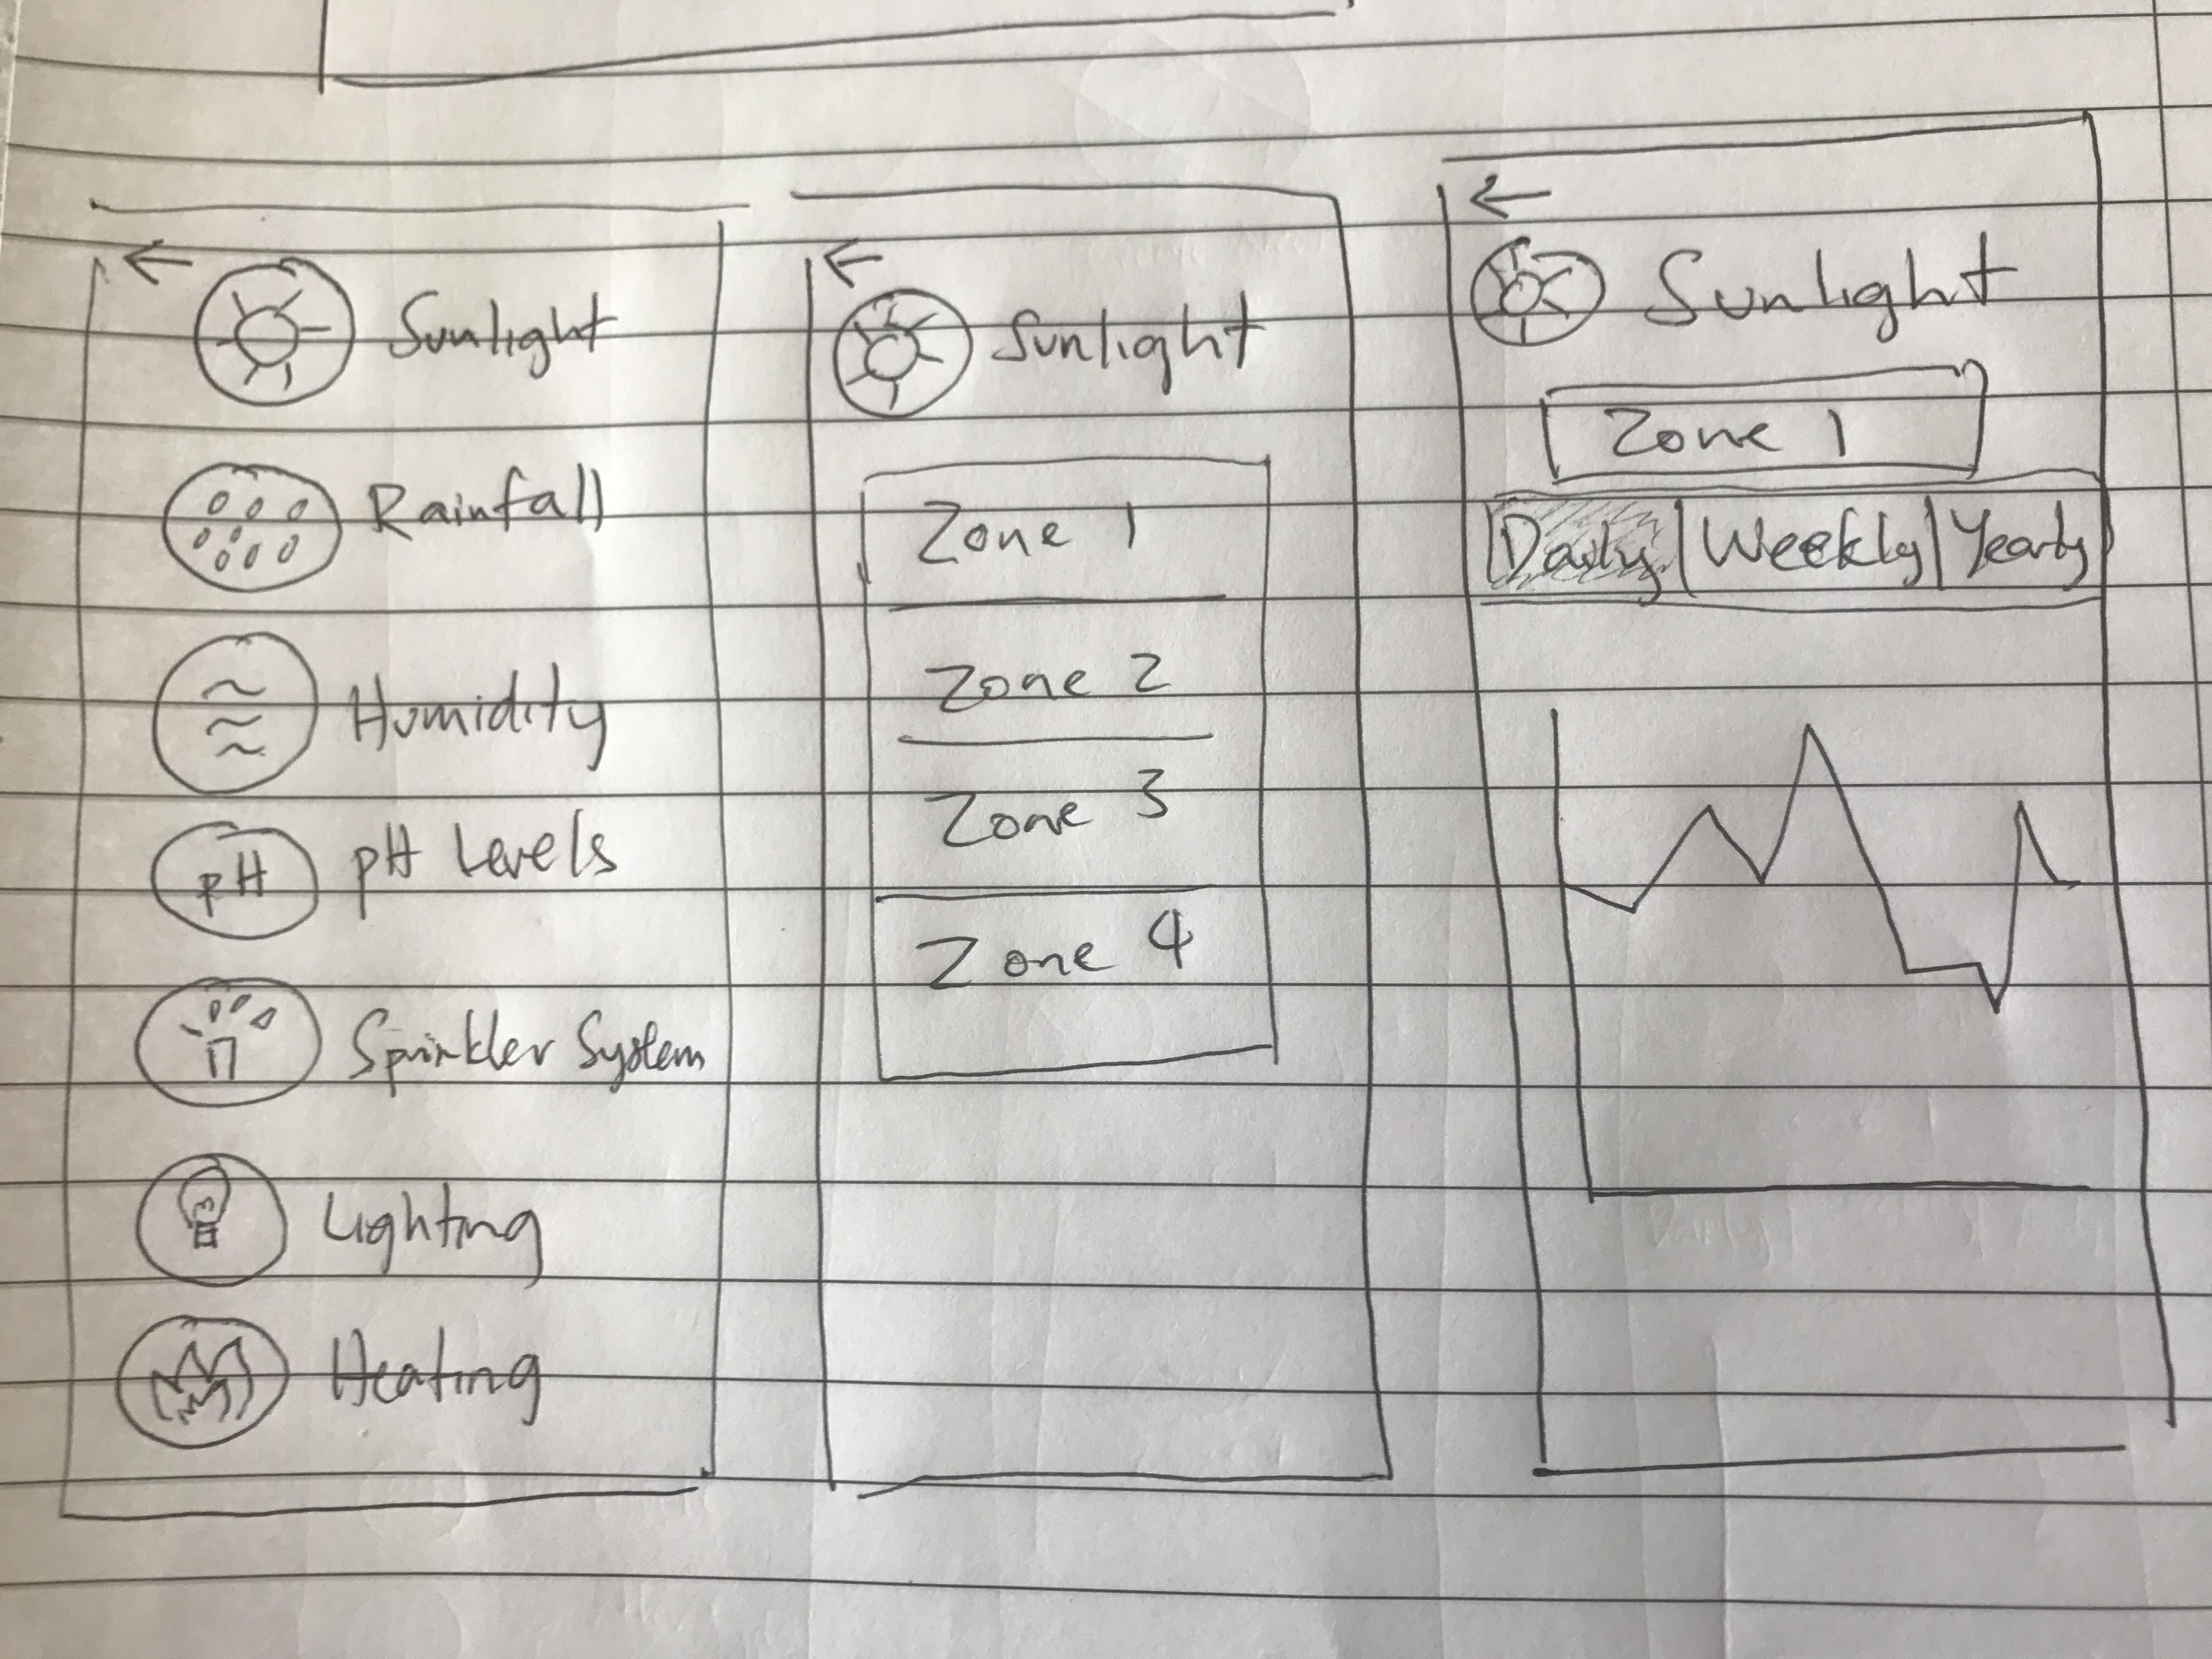 Sunlight
Rainfall
Humidity
pH pH Levels
Sprinkler System
Lighting
Heating
Sunlight
Zone 1
Zone 2
Zone 3
Zone 4
Sunlight
Zone 1
Daily Weekly Yearly